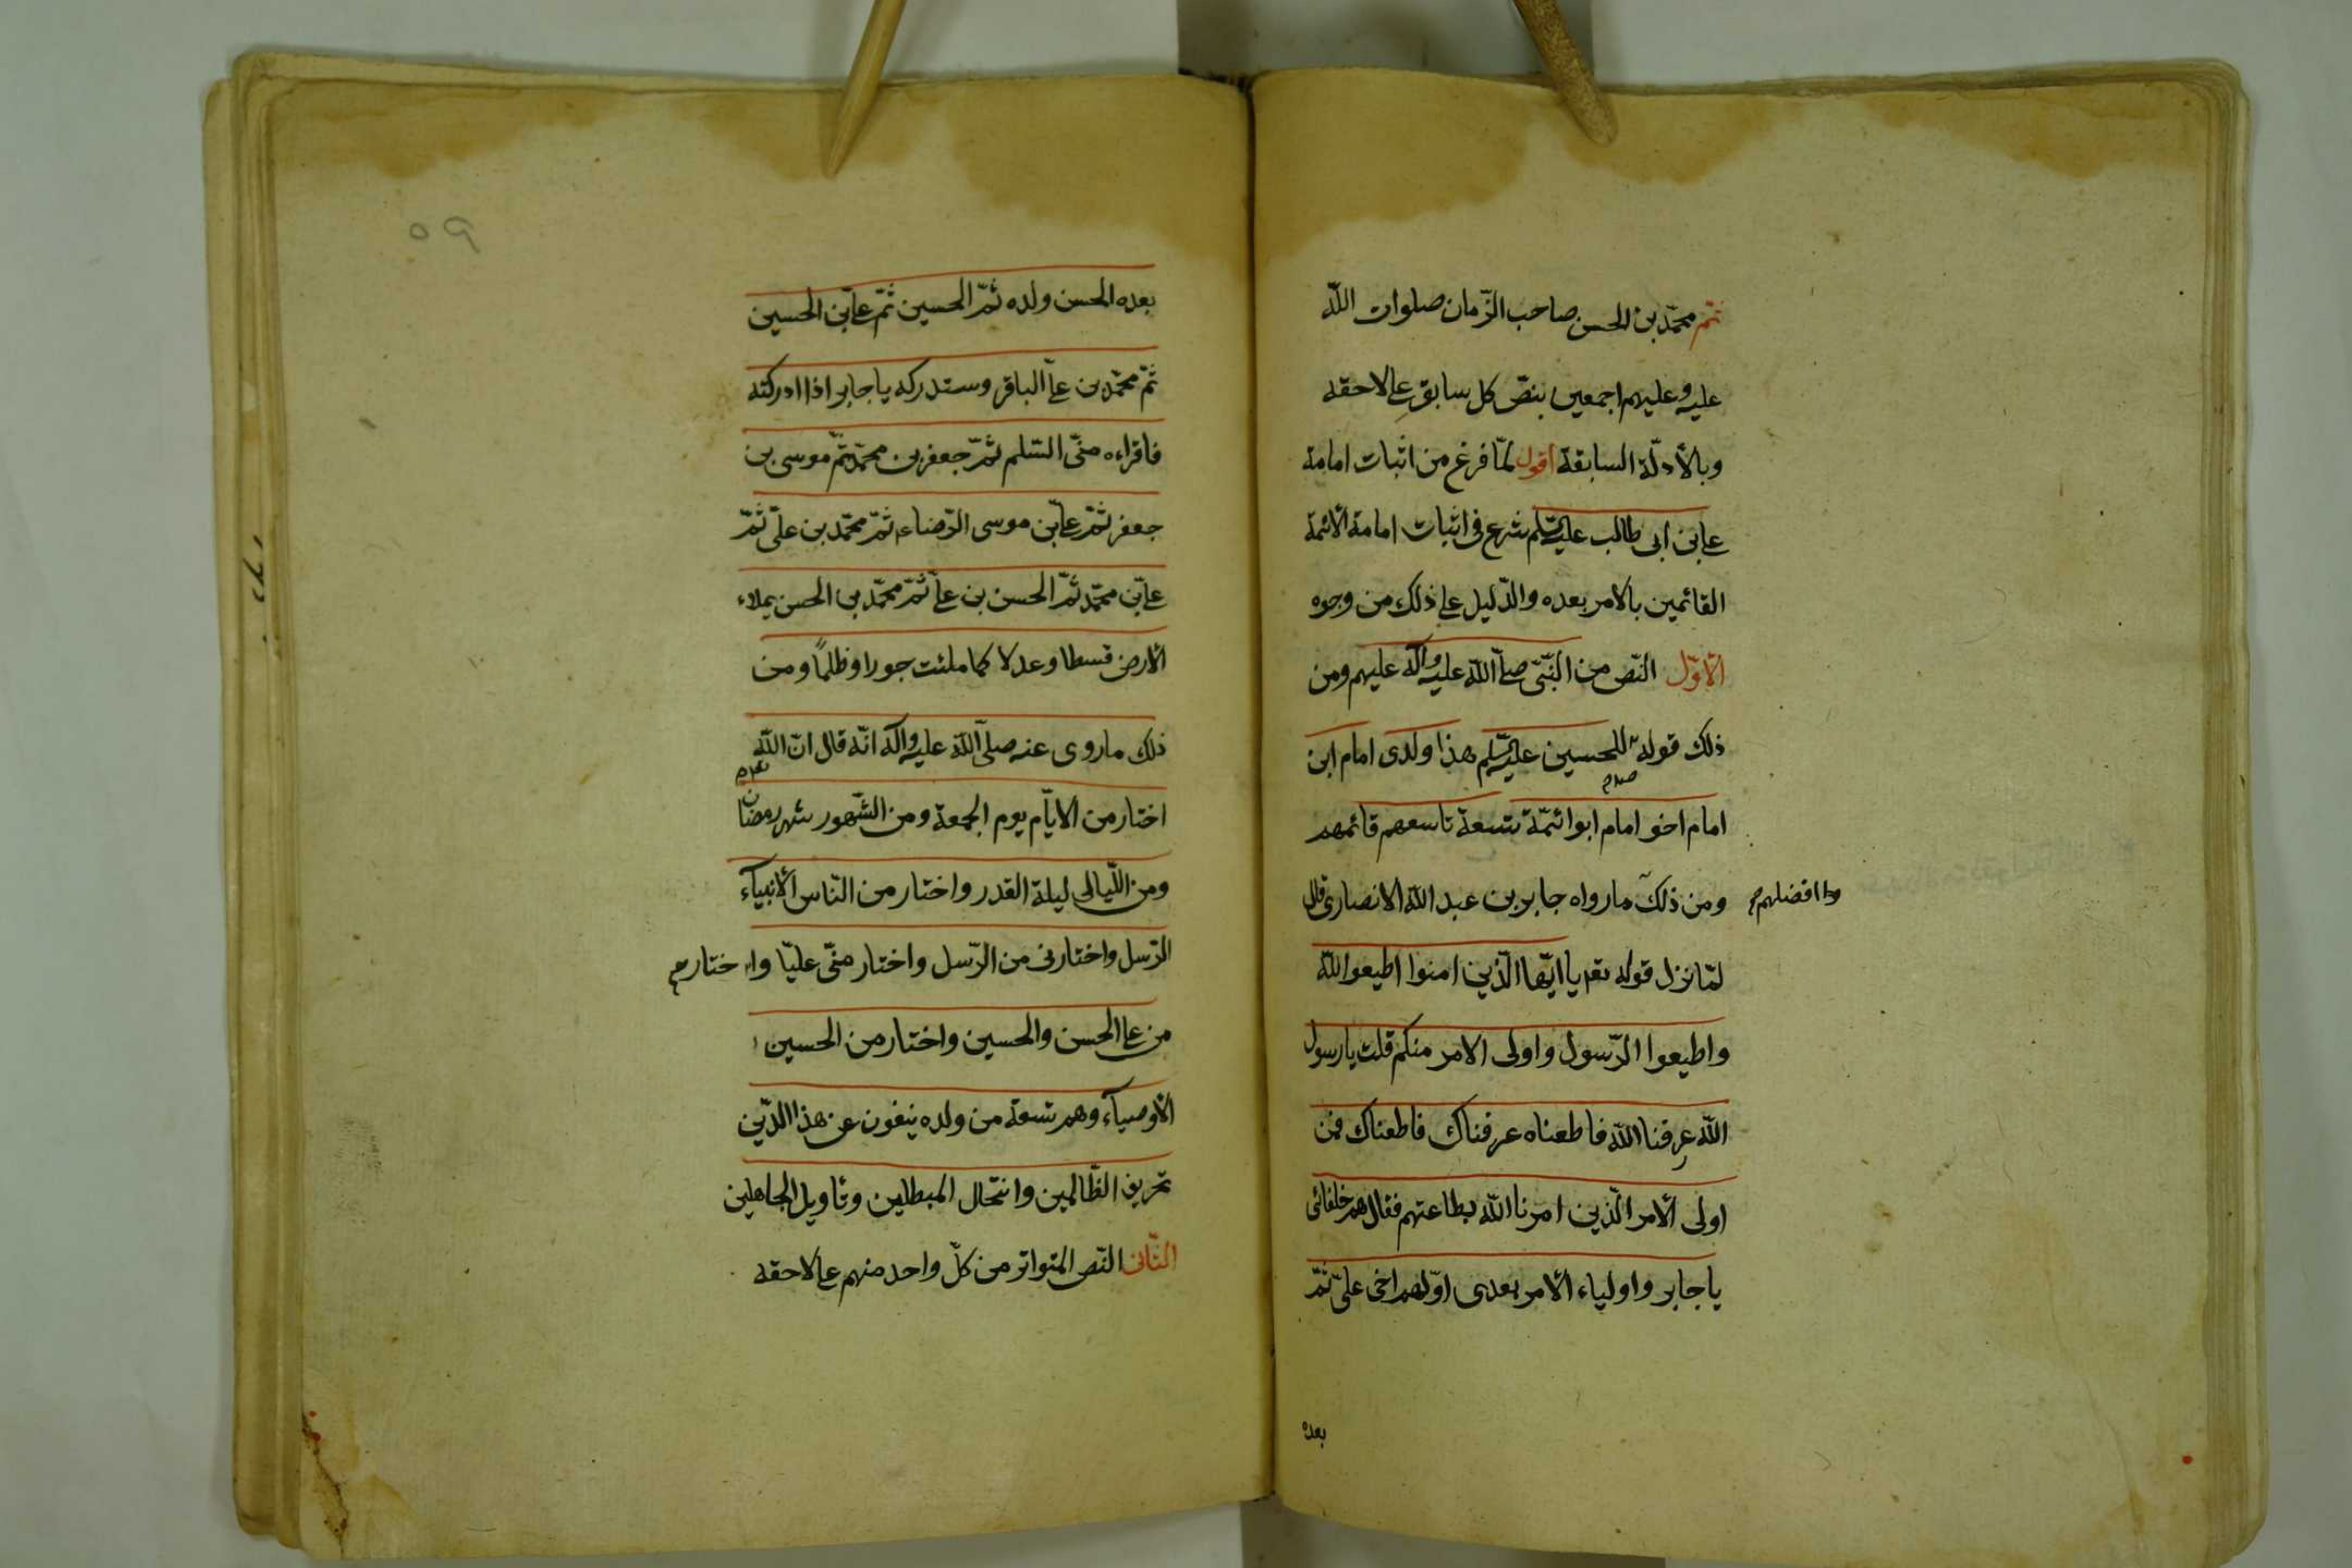 ثمّ محمّد بن الحسن صاحب الزّمان صلوات اللّه
عليه وعليهم اجمعين بنصّ كل سابق على لاحقه
وبالأدلّة السابقة اقول لمّا فرغ من اثبات امامة
علي بن ابى طالب عليه السّلم شرع فى اثبات امامة الائمة
القائمين بالامر بعده والدّليل على ذلك من وجوه
الاوّل النّص من النّبىّ صلّى اللّه عليه واله عليهم ومن
ذلك قوله للحسين عليه السّلم هذا ولدى امام ابن
امام اخو امام ابوا ائمّة تسعة تاسعهم قائمهم
افضلهم
ومن ذلك ما رواه جابر بن عبد اللّه الانصارى قال
لمّا نزل قوله تعم يا ايّها الّذين امنوا اطيعوا اللّه
واطيعوا الرّسول واولى الامر منكم قلت يا رسول
اللّه عرفنا اللّه فاطعناه عرفناك فاطعناك فمن
اولى الامر الّذين امرنا اللّه بطاعتهم فقال هم خلفائى
يا جابر واولياء الامر بعدى اوّلهم اخى علىّ ثمّ
بعده
٥٩
بعده الحسن ولده ثمّ الحسين ثمّ علىّ بن الحسين
ثمّ محمّد بن علىّ الباقر وستدركه يا جابر اذا ادركته
فاقراءه منّى السّلم ثمّ جعفر بن محمّد ثمّ موسى بن
جعفر ثمّ علىّ بن موسى الرّضاء ثمّ محمّد بن علىّ ثمّ
علىّ بن محمّد ثمّ الحسن بن علىّ ثمّ محمّد بن الحسن يملاء
الارض قسطا وعدلا كما ملئت جورا وظلماً ومن
ذلك ما روى عنه صلّى اللّه عليه واله انّه قال انّ اللّه
اختار من الايّام يوم الجمعة ومن الشّهور شهر رمضان
ومن اللّيالى ليلة القدر واختار من النّاس الأنبياء
الرّسل واختارنى من الرّسل واختار منّى عليّا واختار
من على الحسن والحسين واختار من الحسين
الأوصياء وهم تسعة من ولده ينفون عن هذا الدّين
تحريف الظّالمين وانتحال المبطلين وتاويل الجاهلين
الثّانى النّص المتواتر من كلّ واحد منهم على لاحقه